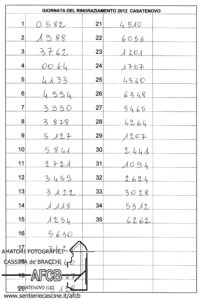 GIORNATA DEL RINGRAZIAMENTO 2012 CASATENOVO
1 0582 21 4510
2 1988 22 6056
3 3762 23 1201
4 0064 24 1707
5 4133 25 4560
6 4996 26 6348
7 3990 27 5465
8 3878 28 4264
9 5127 29 1207
10 5841 30 2441
11 2721 31 1094
12 3459 32 2624
13 3122 33 3028
14 1118 34 5312
15 1254 35 6262
16 5630
17
AMATORI FOTOGRAFICI
CASSINA de' BRACCHI
AFCB
CASATENOVO (LC)
20
www.sentieriecascine.it/afcb